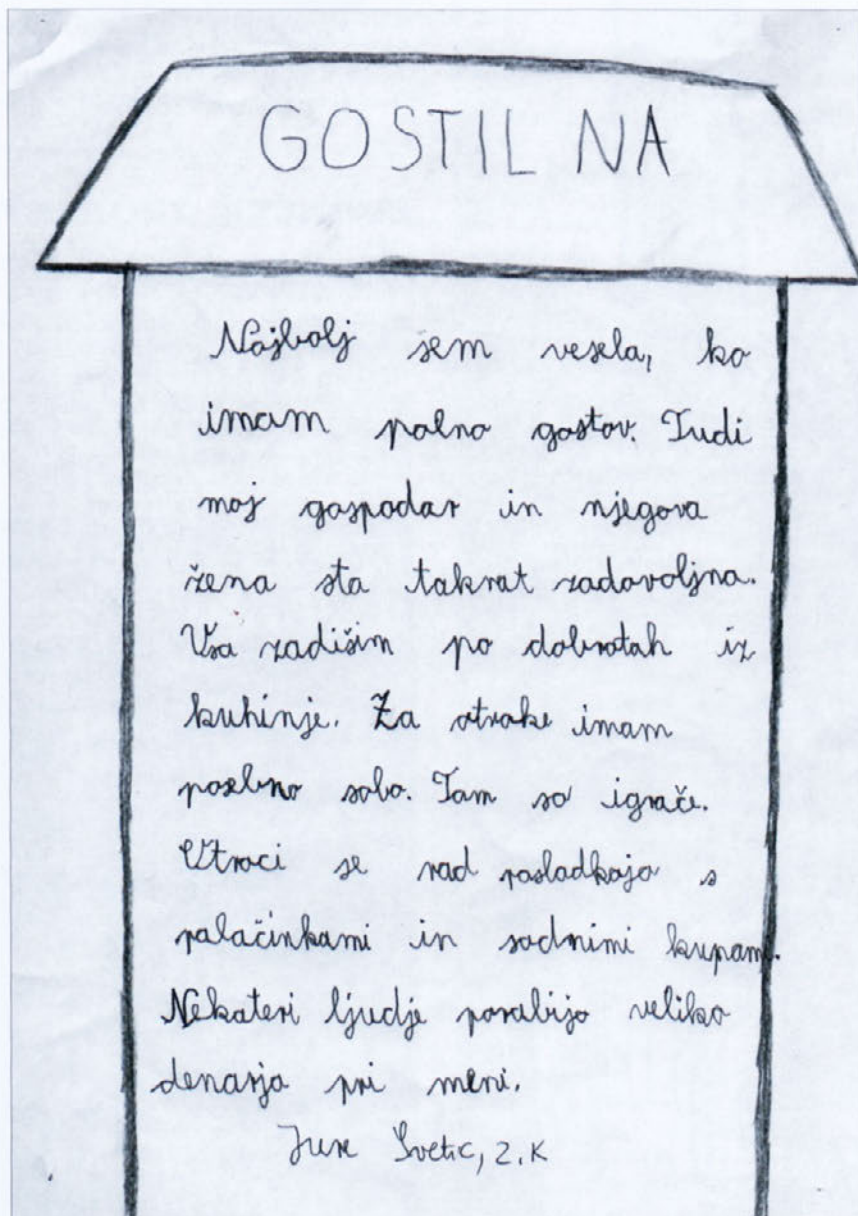 GOSTILNA
Najbolj sem vesela, ko
imam polno gostov. Tudi
moj gospodar in njegova
žena sta takrat zadovoljna.
Vsa zadišim po dobrotah iz
kuhinje. Za otroke imam
posebno sobo. Tam so igrače.
Otroci se rad posladkajo s
palačinkami in sadnimi kupam.
Nekateri ljudje porabijo veliko
denarja pri meni.
Jure Svetic, 2. K